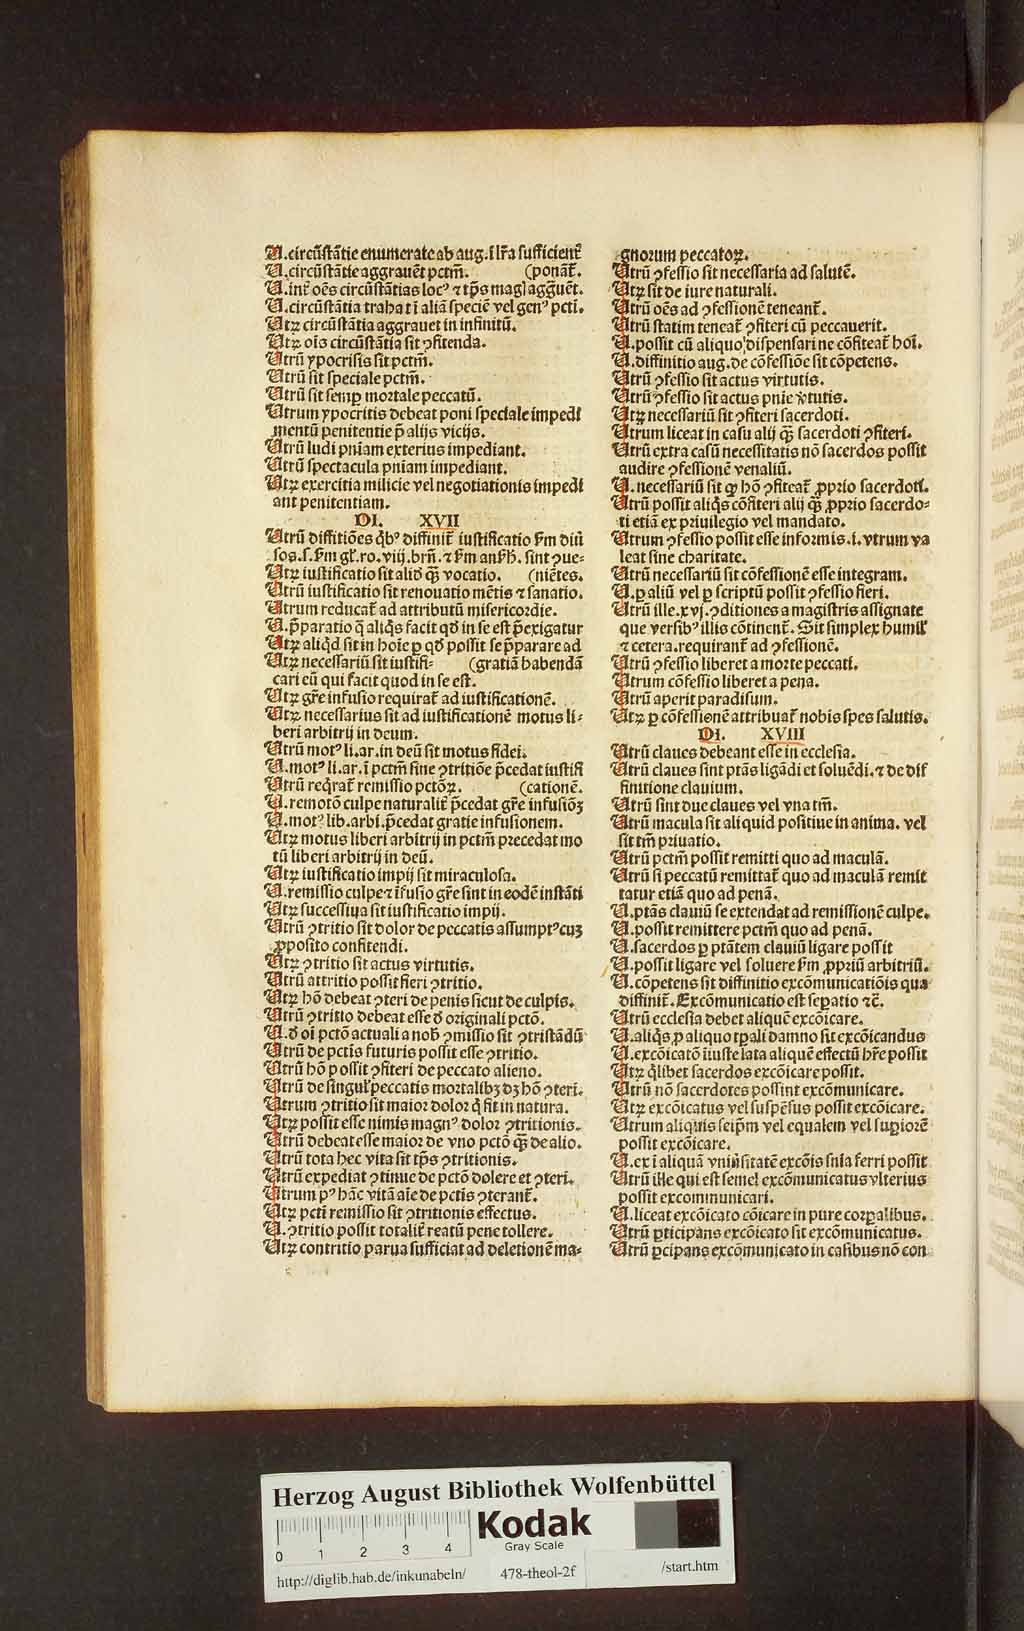 U.circūstātie enumerate ab aug.ī lr̄a sufficient̄
U.circūstātie aggrauēt pctm̄. (ponāt̄.
U.int̄ oēs circūstātias locꝰ ⁊ tp̄s magl aggͣuēt.
U.circūstātia traha t ī aliā speciē vel genꝰ pctī.
Utꝝ circūstātia aggrauet in infinitū.
Utꝝ oīs circūstātia sit ꝯfitenda.
Utrū ypocrisis sit pctm̄.
Utrū sit speciale pctm̄.
Utrū sit semꝑ mortale peccatū.
Utrum ypocritis debeat poni speciale impedi
mentū penitentie p̄ alijs vicijs.
Utrū ludi pniam exterius impediant.
Utrū spectacula pniam impediant.
Utꝝ exercitia milicie vel negotiationis impedi
ant penitentiam.
DI. XVII
Utrū diffitiōes qͥbꝰ diffinit̄ iustificatio ẜm diū
sos.s.ẜm gl̄.ro.viij.brn̄.⁊ ẜm anẜh. sint ꝯue-
Utꝝ iustificatio sit aliđ qꝫ̄ vocatio. (niētes.
Utrū iustificatio sit renouatio mētis ⁊ sanatio.
Utrum reducat̄ ad attributū misericordie.
U.p̄paratio q̄ aliqͥs facit qđ in se est p̄exigatur
Utꝝ aliqͥd sit in hoīe ꝑ qđ possit se p̄parare ad
Utꝝ necessariū sit iustifi- (gratiā habendā
cari eū qui facit quod in se est.
Utꝝ gr̄e infusio requirat̄ ad iustificationē.
Utꝝ necessarius sit ad iustificationē motus li-
beri arbitrij in deum.
Utrū motꝰ li.ar.in deū sit motus fidei.
U.motꝰ li.ar.ī pctm̄ siue ꝯtritiōe p̄cedat iustifi
Utrū reqͥrat̄ remissio pctōꝝ. (cationē.
U.remotō culpe naturalit̄ p̄cedat gr̄e infusiōꝫ
U.motꝰ lib.arbi.p̄cedat gratie infusionem.
Utꝝ motus liberi arbitrij in pctm̄ precedat mo
tū liberi arbitrij in deū.
Utꝝ iustificatio impij sit miraculosa.
U.remissio culpe ⁊ īfusio gr̄e sint in eodē instāti
Utꝝ successiua sit iustificatio impij.
Utrū ꝯtritio sit dolor de peccatis assumptꝰ cuꝫ
ꝓposito confitendi.
Utꝝ ꝯtritio sit actus virtutis.
Utrū attritio possit fieri ꝯtritio.
Utꝝ hō debeat ꝯteri de penis sicut de culpis.
Utrū ꝯtritio debeat esse đ originali pctō.
U.đ oī pctō actuali a nob̄ ꝯmissio sit ꝯtristādū
Utrū de pctīs futuris possit esse ꝯtritio.
Utrū hō possit ꝯfiteri de peccato alieno.
Utrū de singul̄ peccatis mortalibꝫ dꝫ hō ꝯteri.
Utrum ꝯtritio sit maior dolor qͥ fit in natura.
Utꝝ possit esse nimis magnꝰ dolor ꝯtritionis.
Utrū debeat esse maior de vno pctō qꝫ̄ de alio.
Utrū tota hec vita sit tp̄s ꝯtritionis.
Utrū expediat ꝯtinue de pctō dolere et ꝯteri.
Utrum pꝰ hāc vitā aīe de pctīs ꝯterant̄.
Utꝝ pctī remissio sit ꝯtritionis effectus.
U.ꝯtritio possit totalit̄ reatū pene tollere.
Utꝝ contritio parua sufficiat ad deletionē ma-
gnorum peccatoꝝ.
Utrū ꝯfessio sit necessaria ad salutē.
Utꝝ sit de iure naturali.
Utrū oēs ad ꝯfessionē teneant̄.
Utrū statim teneat̄ ꝯfiteri cū peccauerit.
U.possit cū aliquo dispensari ne cōfiteat̄ hoī.
U.diffinitio aug.de cōfessiōe sit cōpetens.
Utrū ꝯfessio sit actus virtutis.
Utrū ꝯfessio sit actus pnie v̄tutis.
Utꝝ necessariū sit ꝯfiteri sacerdoti.
Utrum liceat in casu alij qꝫ̄ sacerdoti ꝯfiteri.
Utrū extra casū necessitatis nō sacerdos possit
audire ꝯfessionē venaliū.
U.necessariū sit qꝫ hō ꝯfiteat̄ ꝓprio sacerdoti.
Utrū possit aliqͥs cōfiteri alij qꝫ̄ ꝓprio sacerdo-
ti etiā ex priuilegio vel mandato.
Utrum ꝯfessio possit esse informis.i.vtrum va
leat sine charitate.
Utrū necessariū sit cōfessionē esse integram.
U.ꝑ aliū vel ꝑ scriptū possit ꝯfessio fieri.
Utrū ille.xvj.ꝯditiones a magistris assignate
que versibꝰ illis cōtinent̄. Sit simplex humil̄
⁊ cetera.requirant̄ ad ꝯfessionē.
Utrū ꝯfessio liberet a morte peccati.
Utrum cōfessio liberet a pena.
Utrū aperit paradisum.
Utꝝ ꝑ cōfessionē attribuat̄ nobis spes salutis.
DI. XVIII
Utrū claues debeant esse in ecclesia.
Utrū claues sint ptās ligādi et soluēdi.⁊ de dif
finitione clauium.
Utrū sint due claues vel vna tm̄.
Utrū macula sit aliquid positiue in anima. vel
sit tm̄ priuatio.
Utrū pctm̄ possit remitti quo ad maculā.
Utrū si peccatū remittat̄ quo ad maculā remit
tatur etiā quo ad penā.
U.ptās clauiū se extendat ad remissionē culpe.
U.possit remittere pctm̄ quo ad penā.
U.sacerdos ꝑ ptātem clauiū ligare possit
U.possit ligare vel soluere ẜm ꝓpriū arbitriū.
U.cōpetens sit diffinitio excōmunicatiōis qua
diffinit̄. Excōmunicatio est seꝑatio ⁊c̄.
Utrū ecclesia debet aliquē excōicare.
U.aliqͥs ꝓ aliquo tꝑali damno sit excōicandus
U.excōicatō īiuste lata aliquē effectū hr̄e possit
Utꝝ qͥlibet sacerdos excōicare possit.
Utrū nō sacerdotes possint excōmunicare.
Utꝝ excōicatus vel suspēsus possit excōicare.
Utrum aliquis seip̄m vel equalem vel suꝑiorē
possit excōicare.
U.ex ī aliquā vniūsitatē excōis snīa ferri possit
Utrū ille qui est semel excōmunicatus vlterius
possit excommunicari.
U.liceat excōicato cōicare in pure corꝑalibus.
Utrū ꝑticipans excōicato sit excōmunicatus.
Utrū ꝑcipans excōmunicato in casibus nō con
Herzog August Bibliothek Wolfenbüttel
Kodak
Gray Scale
0 1 2 3 4
http://diglib.hab.de/inkunabeln/ 478-theol-2f /start.htm